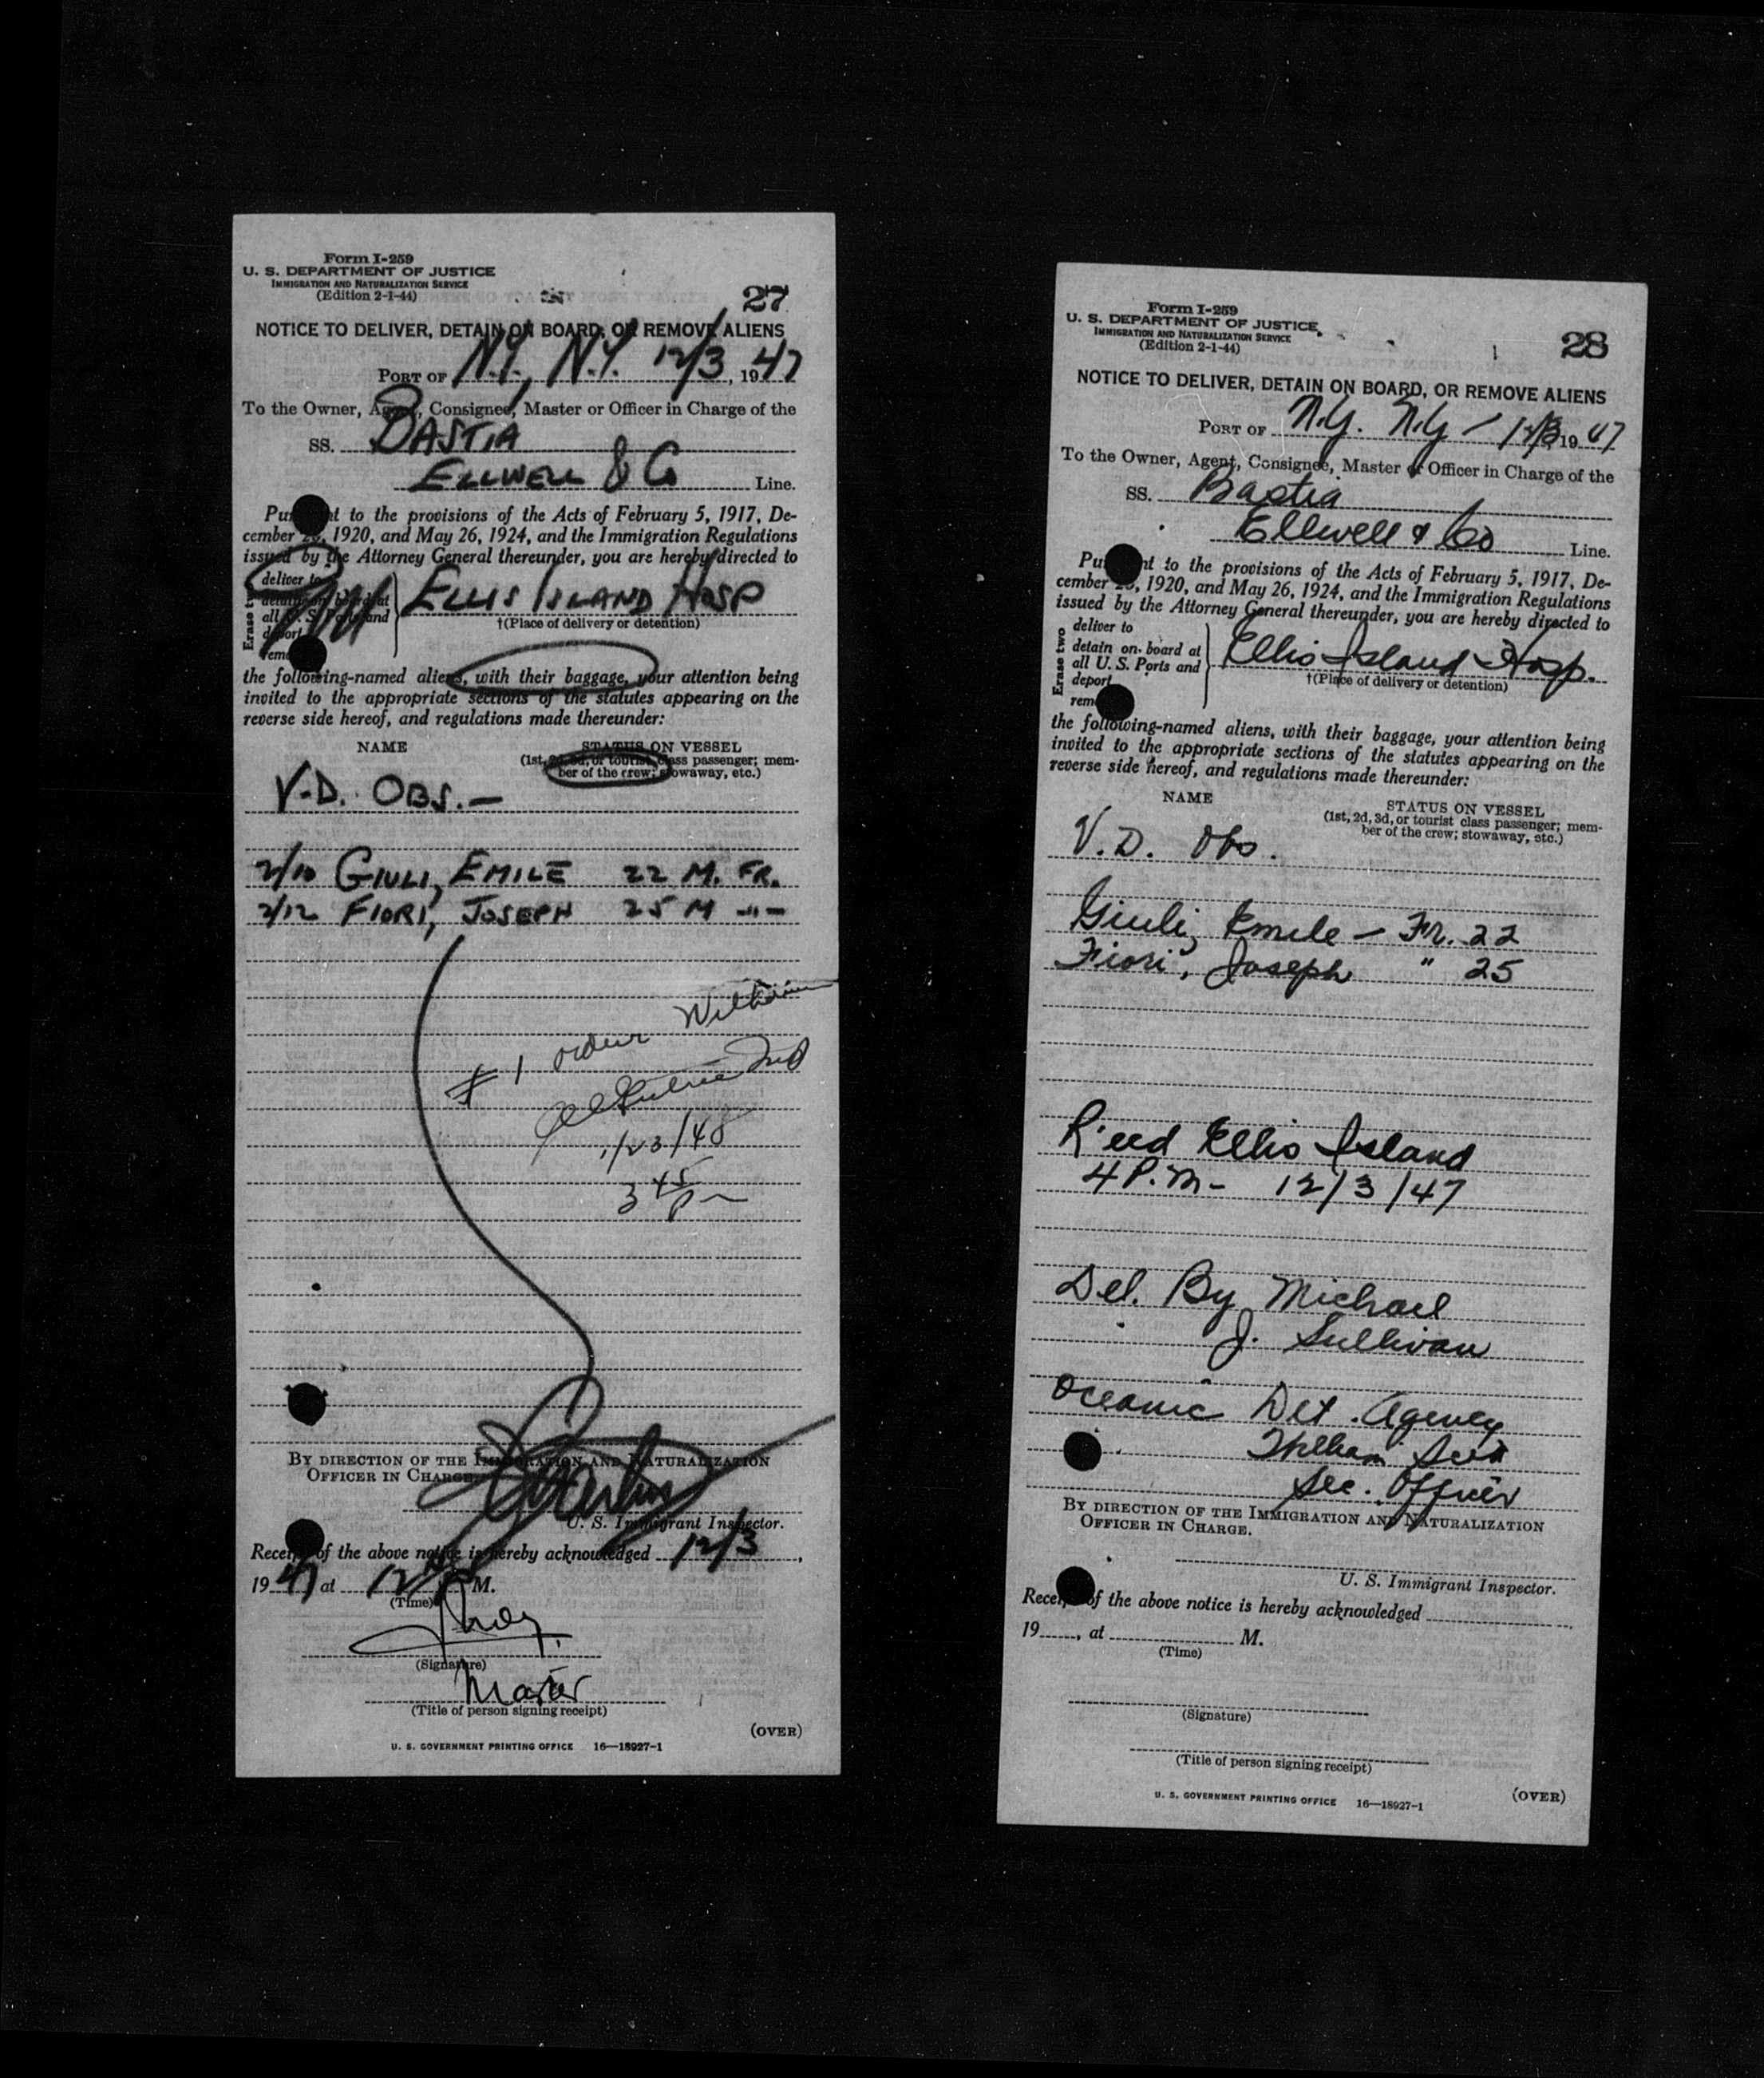 Form I-259
U. S. DEPARTMENT OF JUSTICE
IMMIGRATION AND NATURALIZATION SERVICE
(Edition 2-1-44)
27
NOTICE TO DELIVER, DETAIN ON BOARD, OR REMOVE ALIENS
PORT OF N.Y., N.Y. 12/3, 1947
To the Owner, Agent, Consignee, Master or Officer in Charge of the
SS. BASTIA
ELLWELL & Co Line.
Pu t to the provisions of the Acts of February 5, 1917, De-
cember , 1920, and May 26, 1924, and the Immigration Regulations
issued by the Attorney General thereunder, you are hereby directed to
Erase
deliver to
detain on board at
all U. S. Ports and
deport
rem
ELLIS ISLAND HOSP
†(Place of delivery or detention)
the following-named aliens, with their baggage, your attention being
invited to the appropriate sections of the statutes appearing on the
reverse side hereof, and regulations made thereunder:
NAME STATUS ON VESSEL
(1st, 2d, 3d, or tourist class passenger; mem-
ber of the crew; stowaway, etc.)
V.D. OBS.—
2/10 GIULI, EMILE 22 M. FR.
2/12 FIORI, JOSEPH 25 M -"-
# 1 order
1/23/48
3 45 P
BY DIRECTION OF THE IMMIGRATION AND NATURALIZATION
OFFICER IN CHARGE.
U. S. Immigrant Inspector.
Receipt of the above notice is hereby acknowledged 12/3,
1947 at 12 M.
(Time)
(Signature)
Master
(Title of person signing receipt)
(OVER)
U. S. GOVERNMENT PRINTING OFFICE 16—18927-1
Form I-259
U. S. DEPARTMENT OF JUSTICE
IMMIGRATION AND NATURALIZATION SERVICE
(Edition 2-1-44)
28
NOTICE TO DELIVER, DETAIN ON BOARD, OR REMOVE ALIENS
PORT OF N.Y. N.Y - 12/3, 1947
To the Owner, Agent, Consignee, Master or Officer in Charge of the
SS. Bastia
Ellwell & Co Line.
Pu nt to the provisions of the Acts of February 5, 1917, De-
cember , 1920, and May 26, 1924, and the Immigration Regulations
issued by the Attorney General thereunder, you are hereby directed to
Erase two
deliver to
detain on board at
all U. S. Ports and
deport
rem
Ellis Island Hosp.
†(Place of delivery or detention)
the following-named aliens, with their baggage, your attention being
invited to the appropriate sections of the statutes appearing on the
reverse side hereof, and regulations made thereunder:
NAME STATUS ON VESSEL
(1st, 2d, 3d, or tourist class passenger; mem-
ber of the crew; stowaway, etc.)
V.D. Obs.
Giuli, Emile — Fr. 22
Fiori, Joseph " 25
R'eed Ellis Island
4 P.M- 12/3/47
Del. By Michael
J. Sullivan
Oceanic Det. Agency
Sec. Officer
BY DIRECTION OF THE IMMIGRATION AND NATURALIZATION
OFFICER IN CHARGE.
U. S. Immigrant Inspector.
Receipt of the above notice is hereby acknowledged
19 , at M.
(Time)
(Signature)
(Title of person signing receipt)
(OVER)
U. S. GOVERNMENT PRINTING OFFICE 16—18927-1